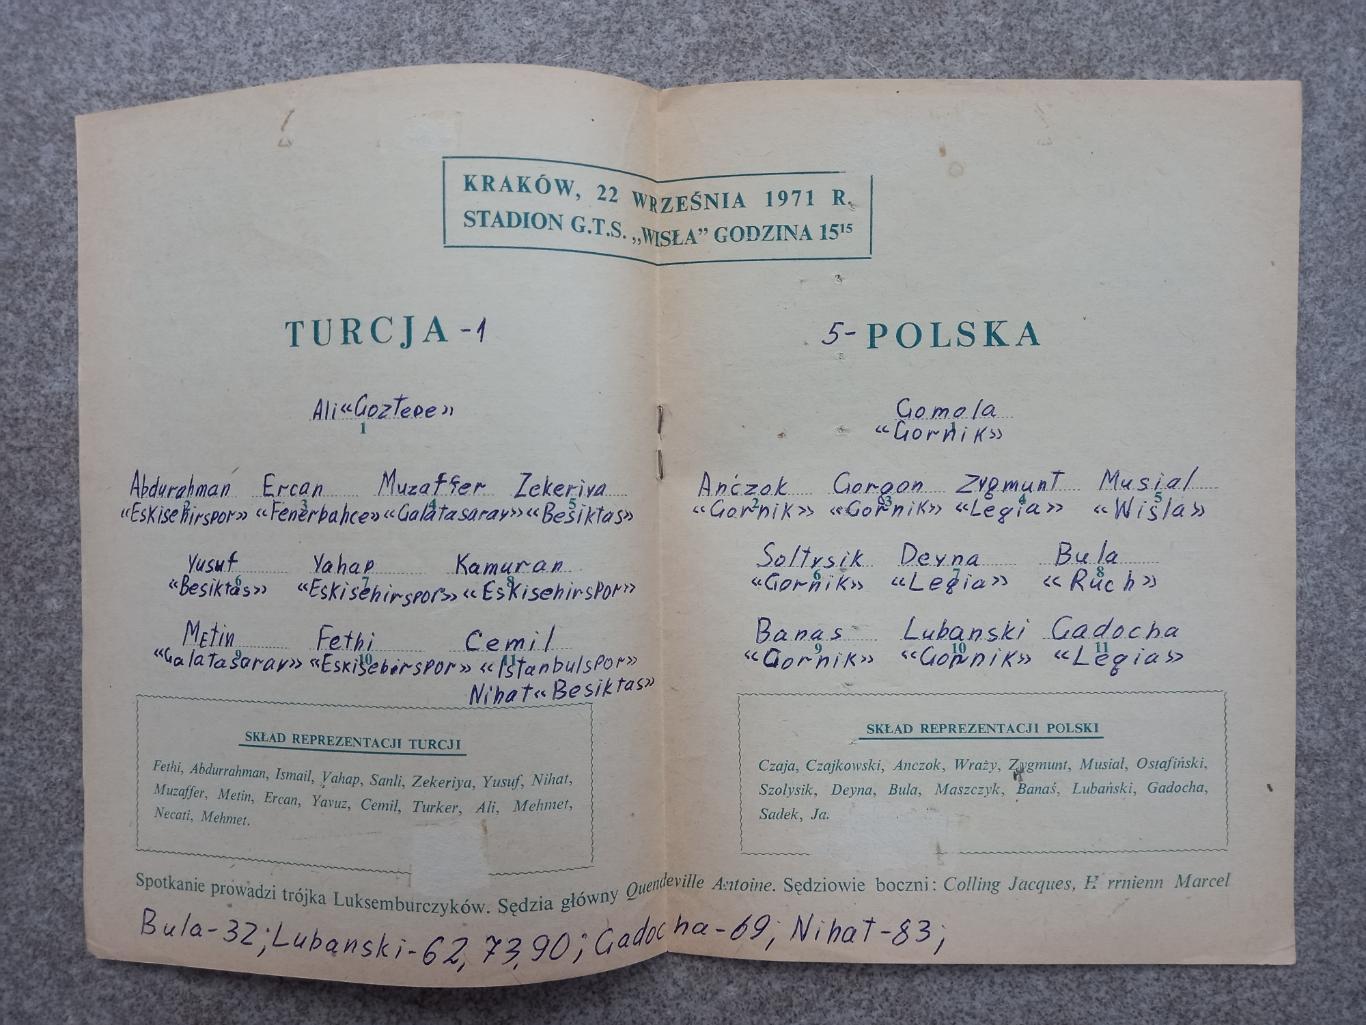 KRAKÓW, 22 WRZEŚNIA 1971 R.
STADION G.T.S. „WISŁA” GODZINA 15¹⁵
TURCJA -1
5- POLSKA
Ali «Goztepe»
1
Abdurahman Ercan Muzaffer Zekeriya
2 3 4 5
«Eskisehirspor» «Fenerbahce» «Galatasaray» «Besiktas»
Yusuf Yahap Kamuran
6 7 8
«Besiktas» «Eskisehirspor» «Eskisehirspor»
Metin Fethi Cemil
9 10 11
«Galatasaray» «Eskisehirspor» «Istanbulspor»
Nihat «Besiktas»
SKŁAD REPREZENTACJI TURCJI
Fethi, Abdurrahman, Ismail, Yahap, Sanli, Zekeriya, Yusuf, Nihat,
Muzaffer, Metin, Ercan, Yavuz, Cemil, Turker, Ali, Mehmet,
Necati, Mehmet.
Gomola
1
«Gornik»
Anczok Gorgon Zygmunt Musial
2 3 4 5
«Gornik» «Gornik» «Legia» «Wisla»
Soltysik Deyna Bula
6 7 8
«Gornik» «Legia» «Ruch»
Banas Lubanski Gadocha
9 10 11
«Gornik» «Gornik» «Legia»
SKŁAD REPREZENTACJI POLSKI
Czaja, Czajkowski, Anczok, Wraży, Zygmunt, Musiał, Ostafiński,
Szolysik, Deyna, Bula, Maszczyk, Banaś, Lubański, Gadocha,
Sadek, Ja.
Spotkanie prowadzi trójka Luksemburczyków. Sędzia główny Quendeville Antoine. Sędziowie boczni: Colling Jacques, Marcel
Bula-32; Lubanski-62, 73, 90; Gadocha-69; Nihat-83;